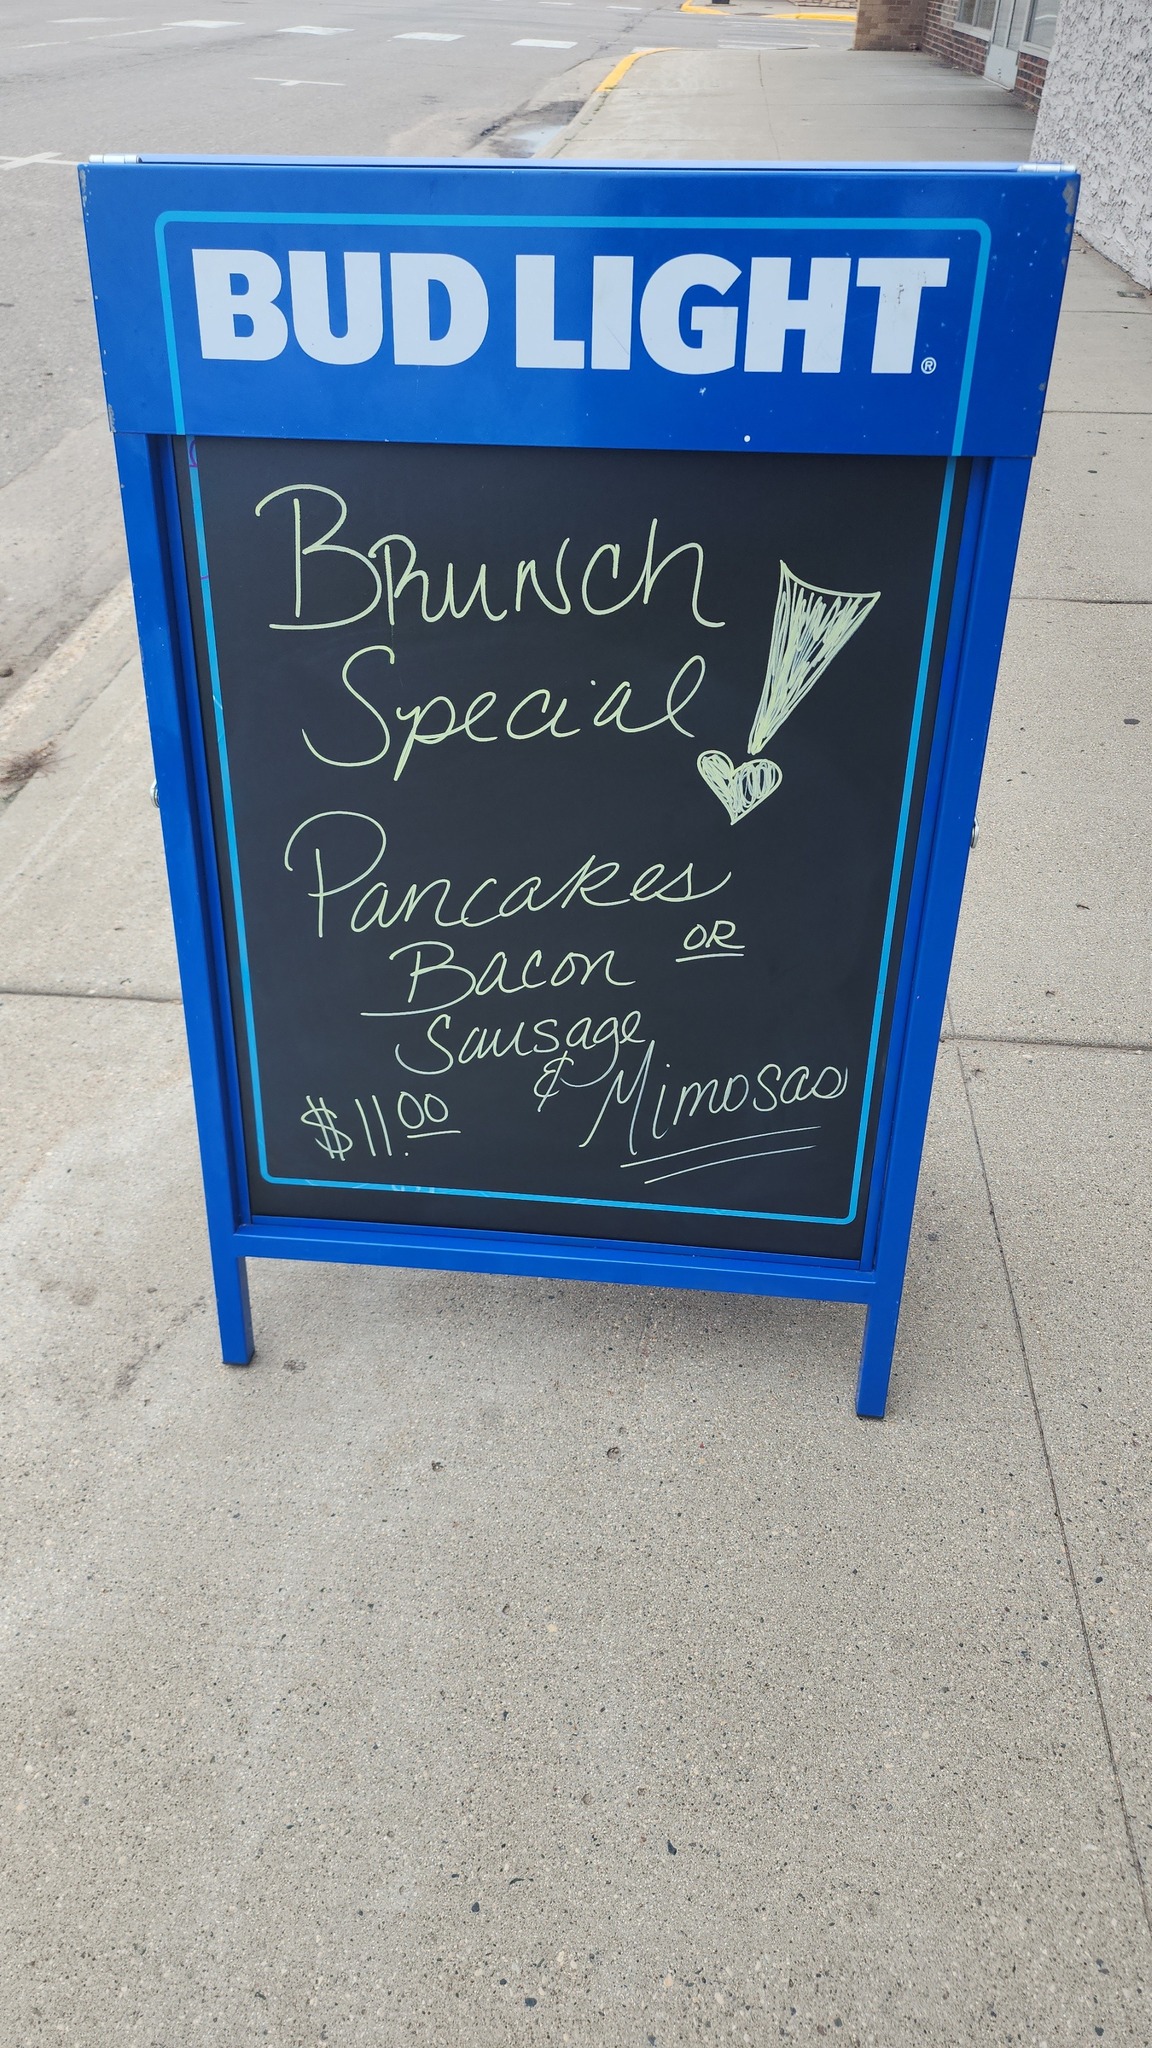 BUD LIGHT®
Brunch
Special!
Pancakes
Bacon OR
Sausage
& Mimosas
$11.00